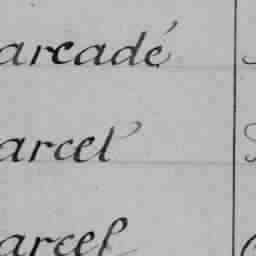 arcadé
arcel
arcel